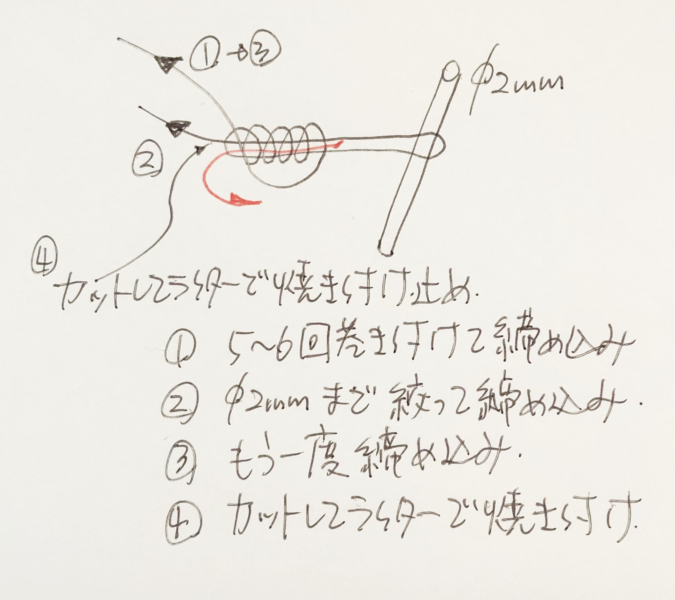 ①→③
φ2mm
②
④
カットしてライターで焼き付け止め.
① 5~6回巻き付けて締め込み
② φ2mmまで絞って締め込み.
③ もう一度締め込み.
④ カットしてライターで焼き付け.